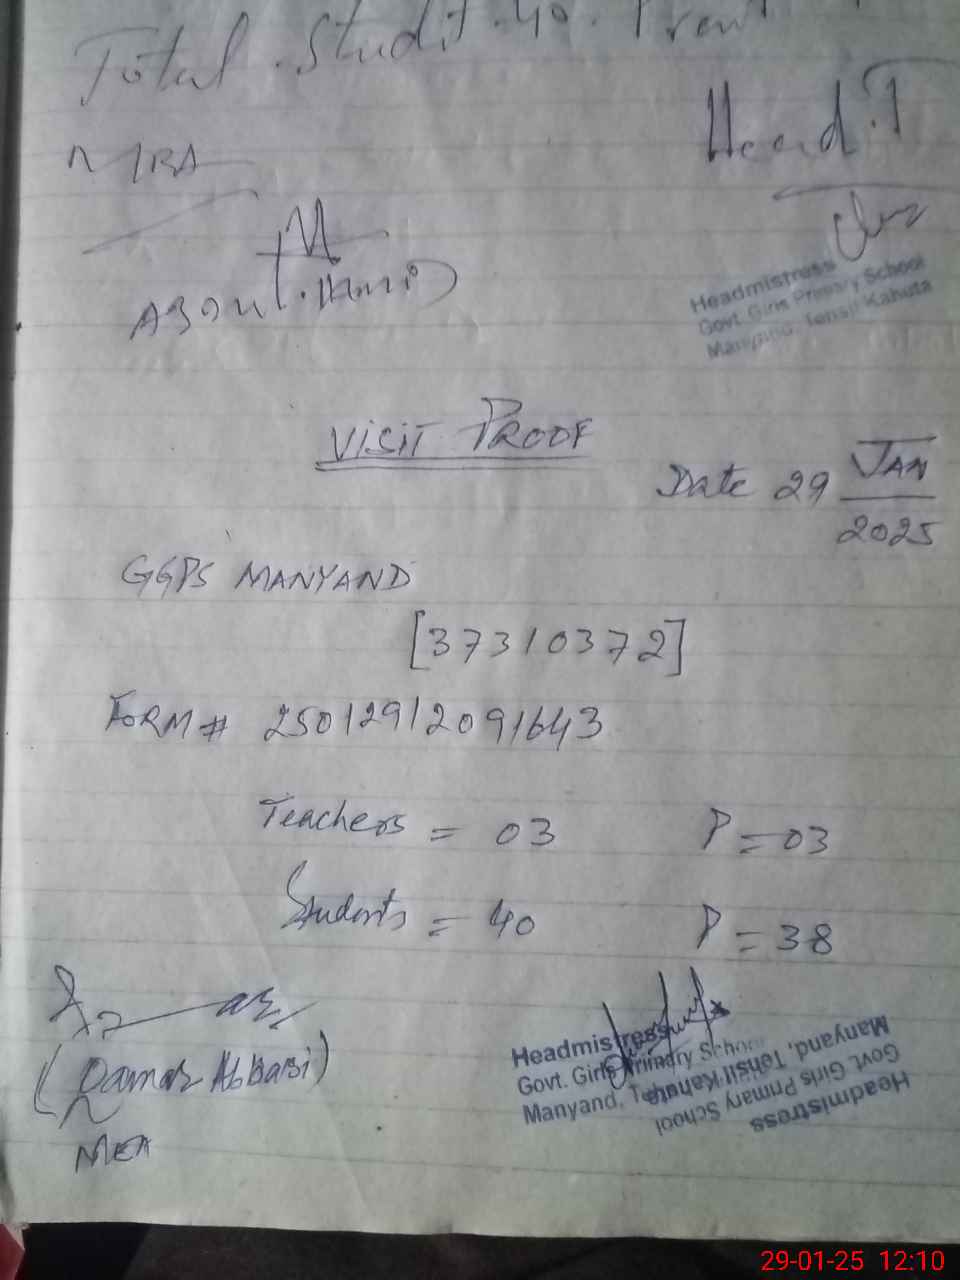 Total Studt 40
Head.T
MEA
Abdul Hamid
Headmistress
Govt. Girls Primary School
Manyand, Tehsil Kahuta
VISIT PROOF
Date 29 JAN
2025
GGPS MANYAND
[37310372]
FORM # 25012912091643
Teachers = 03 P = 03
Students = 40 P = 38
(Qamar Abbasi)
MEA
Headmistress
Govt. Girls Primary School
Manyand, Tehsil Kahuta
Headmistress
Govt. Girls Primary School
Manyand, Tehsil Kahuta
29-01-25 12:10